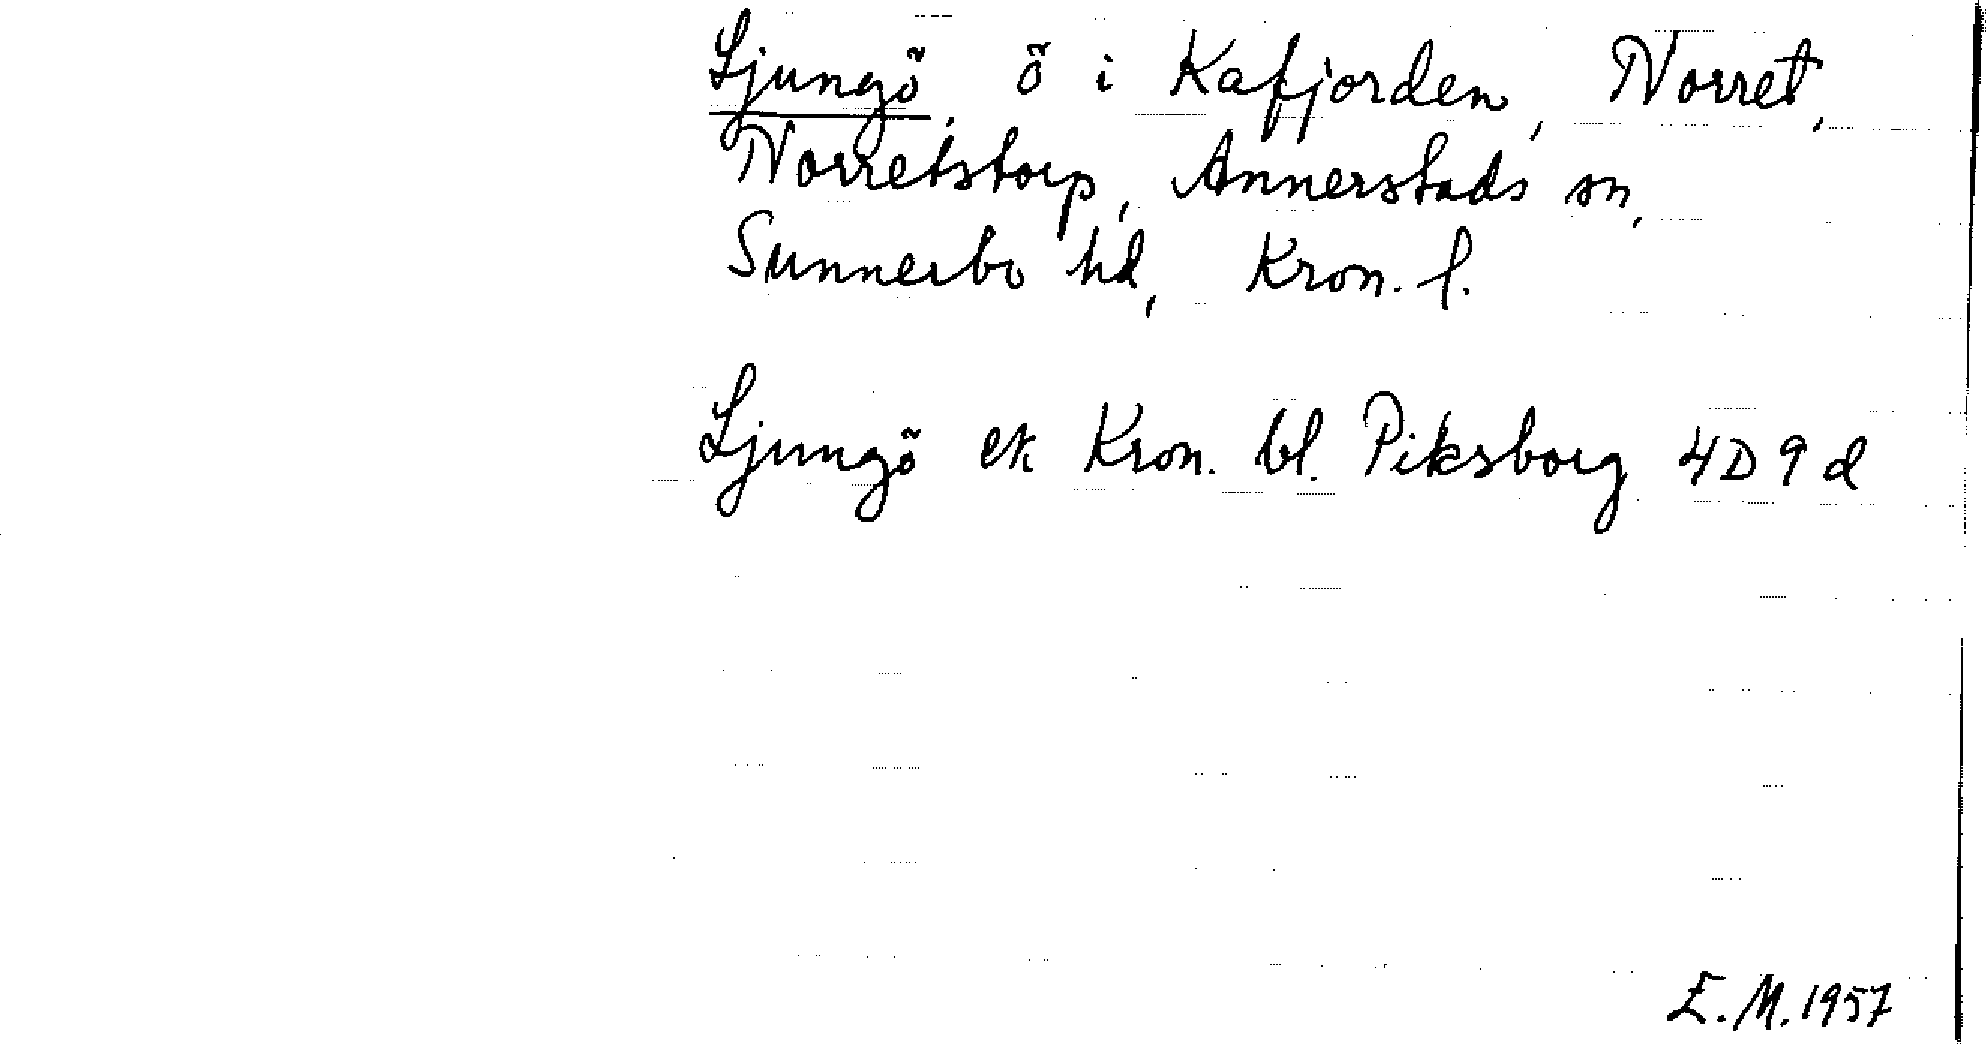 Ljungö, ö i Kafjorden, Norret,
Norretstorp, Annerstads sn,
Sunnerbo hd, Kron. l.
Ljungö ek Kron. bl. Piksborg 4D9d
E.M. 1957